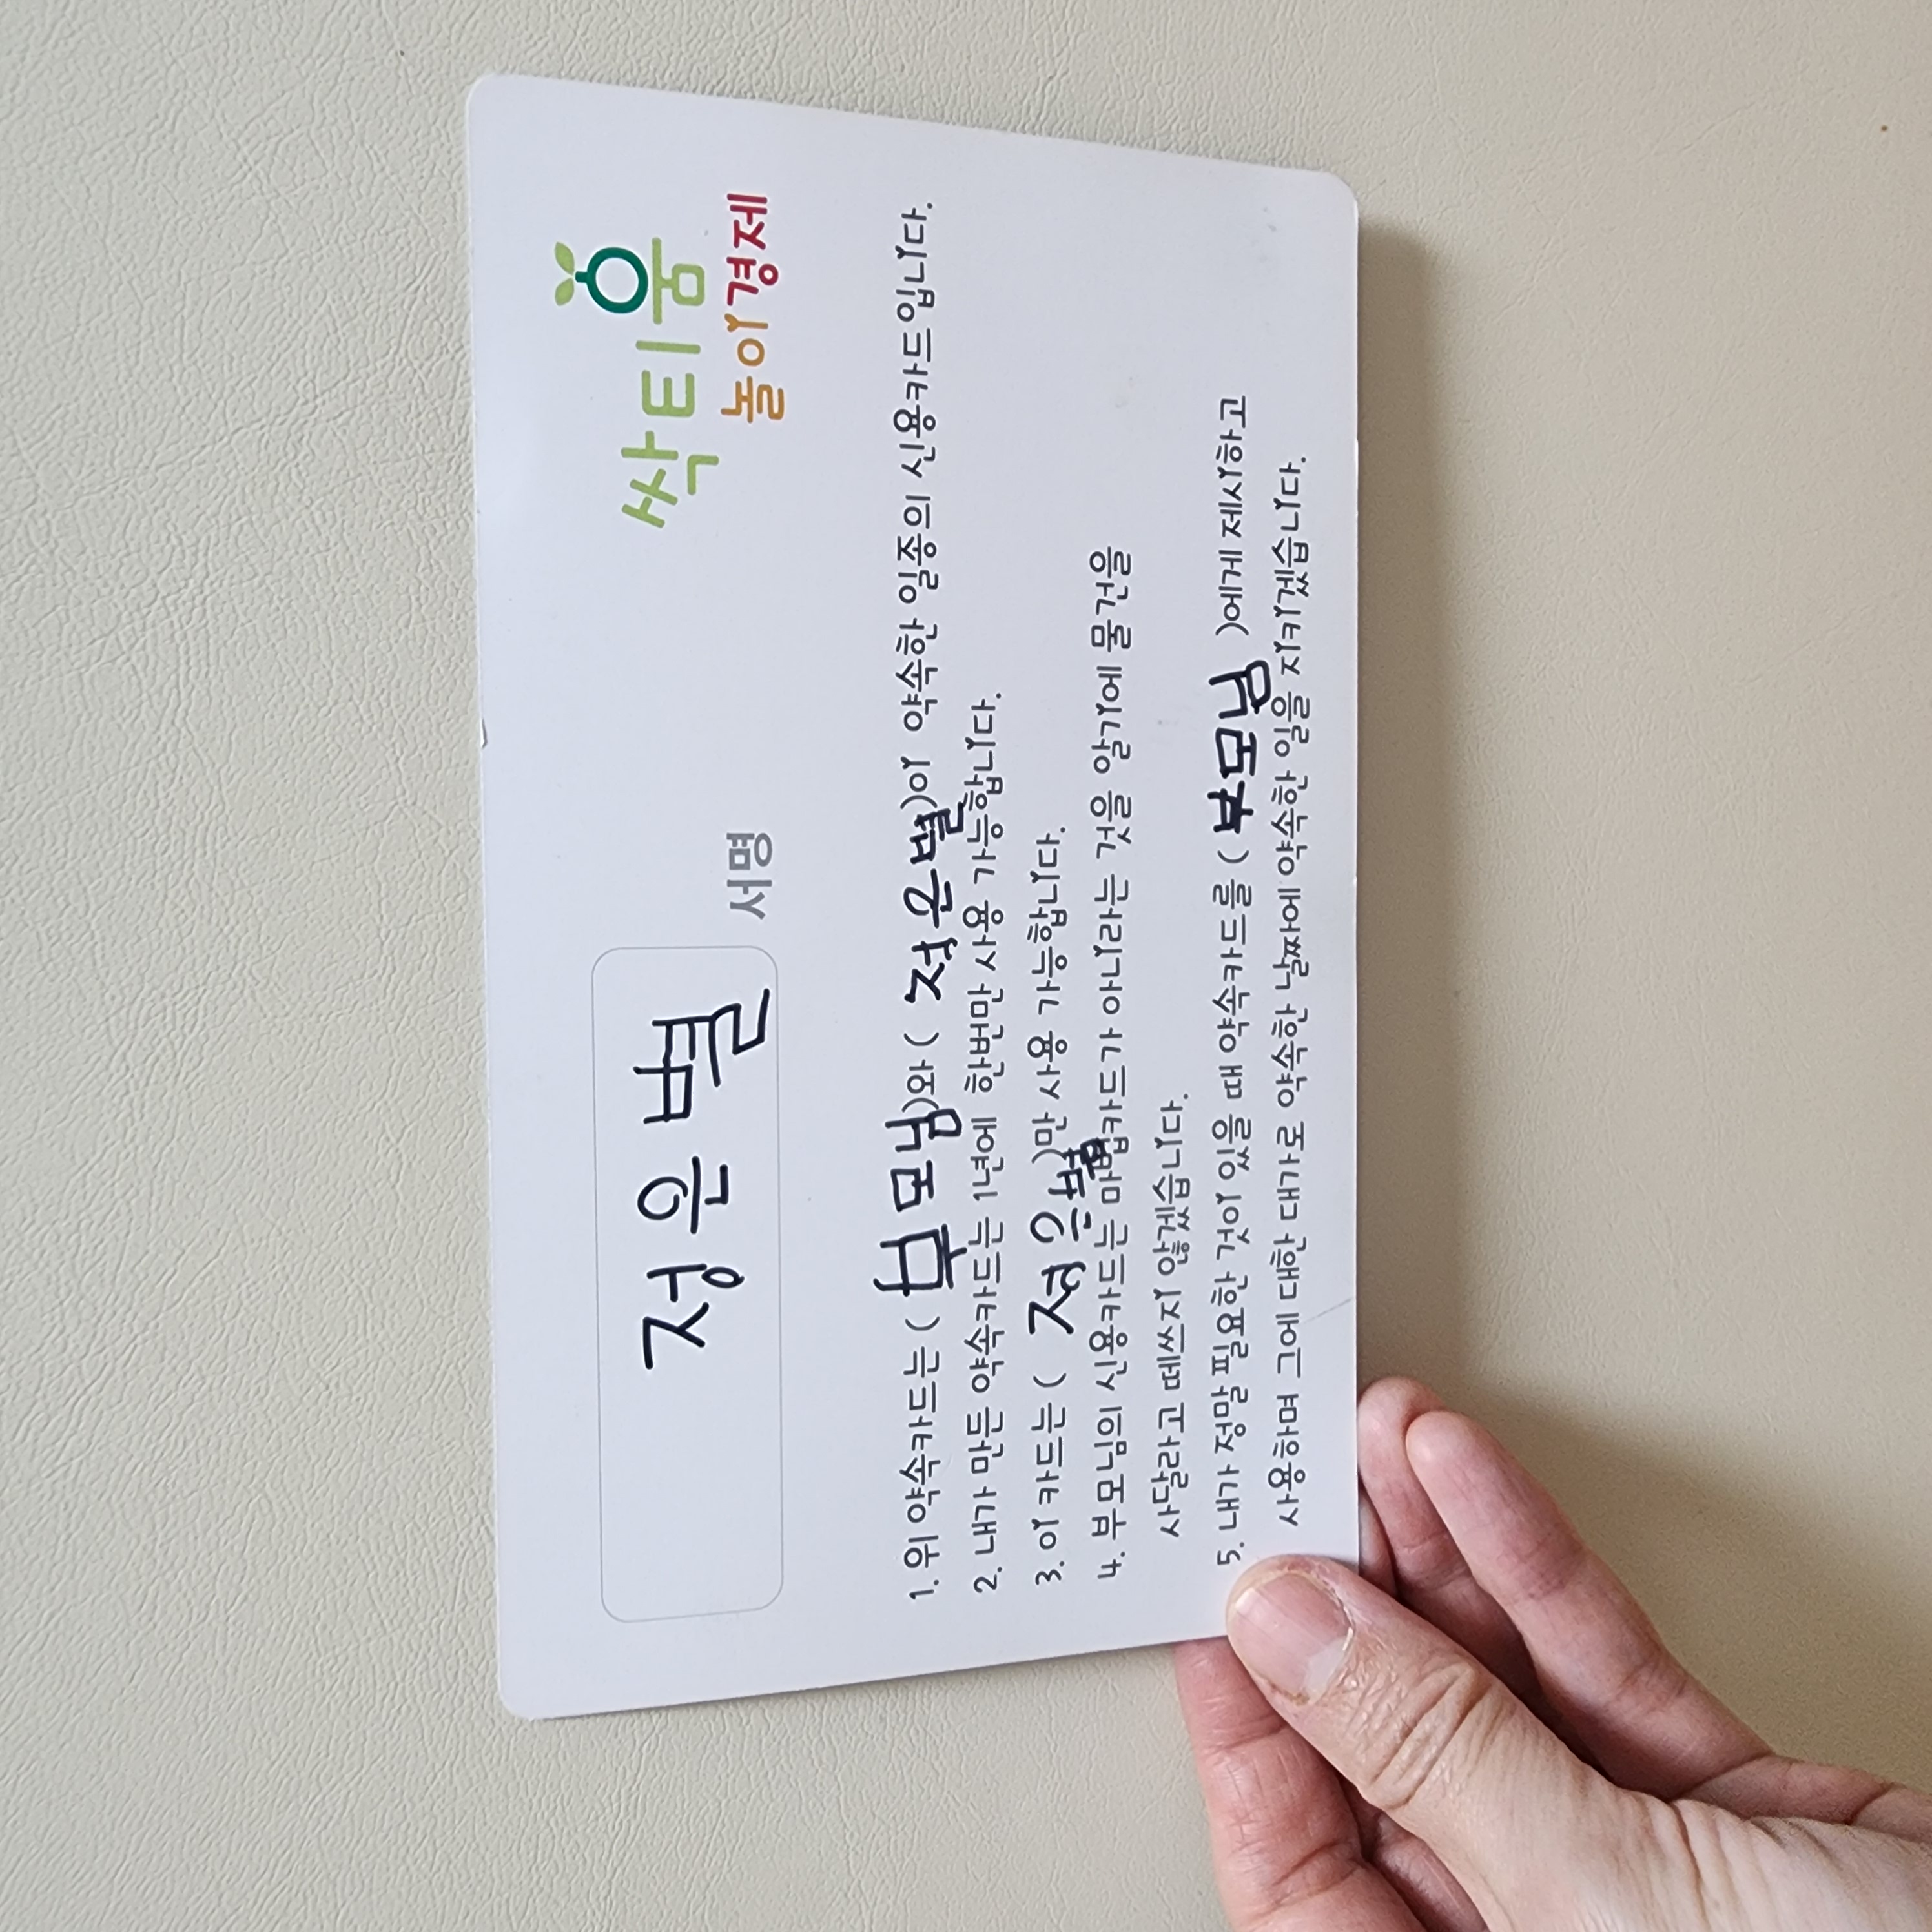 싹티움
놀이경제
정은별 서명
1. 위 약속카드는 ( 부모님 )와 ( 정은별 )이 약속한 일종의 신용카드입니다.
2. 내가 만든 약속카드는 1년에 한번만 사용 가능합니다.
3. 이 카드는 ( 정은별 )만 사용 가능합니다.
4. 부모님의 신용카드는 마법카드가 아니라는 것을 알기에 물건을
사달라고 떼쓰지 않겠습니다.
5. 내가 정말 필요한 것이 있을 때 약속카드를 ( 부모님 )에게 제시하고
사용하며 그에 대한 대가로 약속한 날짜에 약속한 일을 지키겠습니다.